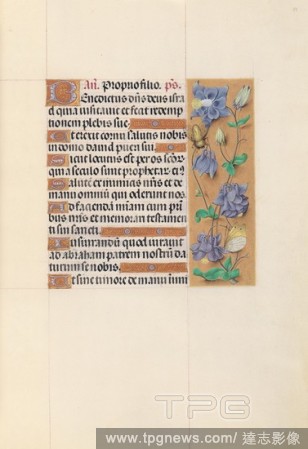 An. Proprio filio. ps.
Benedictus dns deus isra
el quia visitavit et fecit redemp
tionem plebis sue
Et erexit cornu salutis nobis
in domo david pueri sui
Sicut locutus est per os scōr
qui a seculo sunt prophetar ei
Salutē ex inimicis nr̄is et de
manu omniū qui oderunt nos
Ad faciendā miam̄ cum pri
bus nr̄is et memorari testamen
ti sui sancti
Iusiurandū quod iuravit
ad abraham patrem nostrū da
turum se nobis
Ut sine timore de manu inimi
TPG
www.tpgnews.com/達志影像